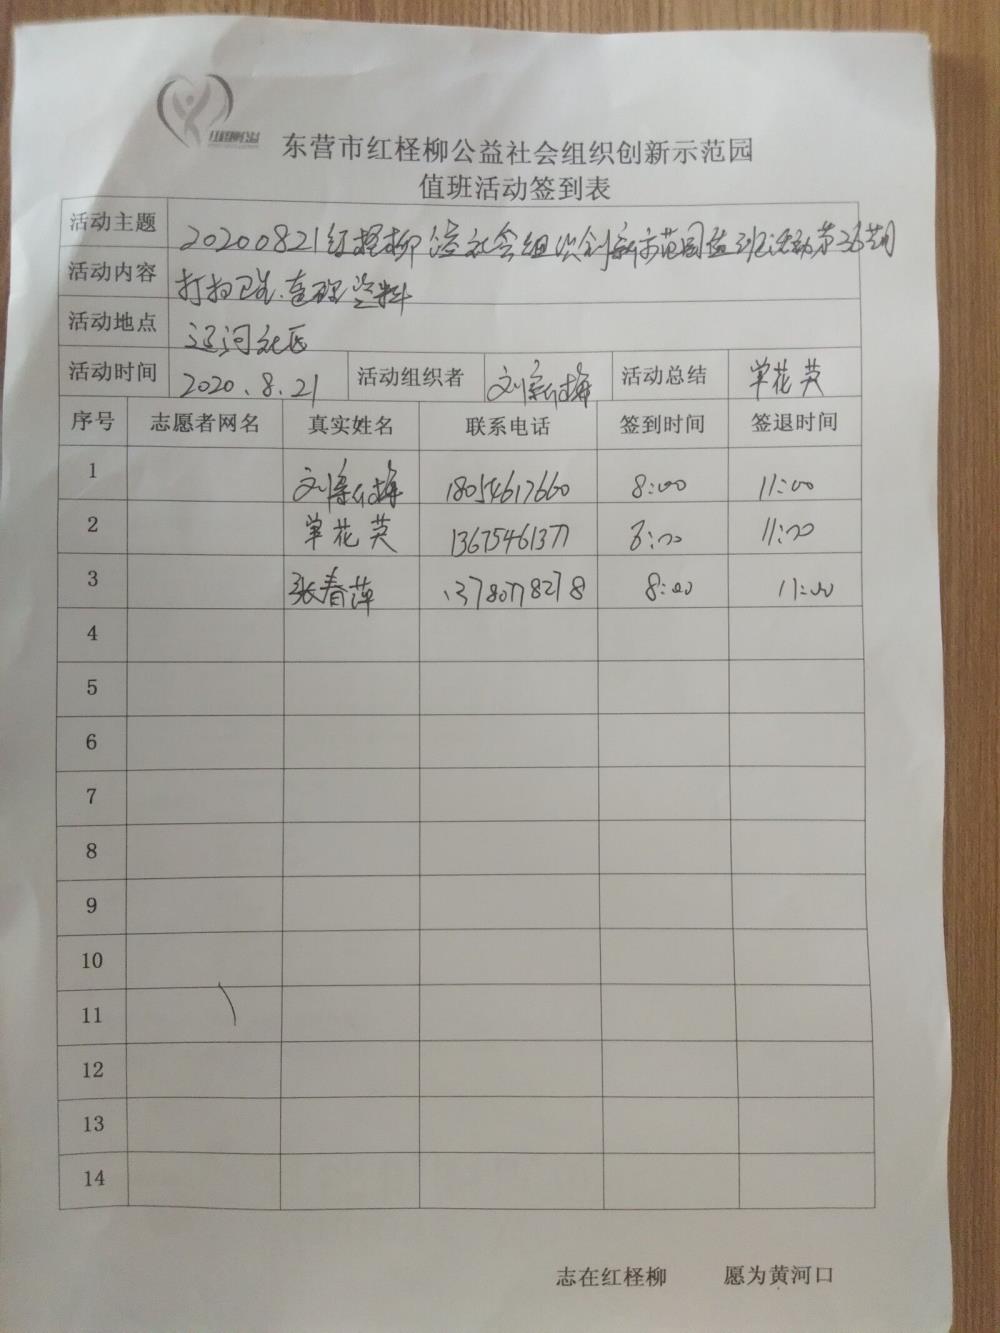 红柽柳公益
东营市红柽柳公益社会组织创新示范园
值班活动签到表
活动主题 20200821红柽柳公益社会组织创新示范园值班活动第26期
活动内容 打扫卫生、查理资料
活动地点 辽河社区
活动时间 2020.8.21 活动组织者 刘新梅 活动总结 单花英
序号 志愿者网名 真实姓名 联系电话 签到时间 签退时间
1 刘新梅 18054617660 8:00 11:00
2 单花英 13675461377 8:00 11:00
3 张春萍 13780778278 8:00 11:00
4
5
6
7
8
9
10
11
12
13
14
志在红柽柳 愿为黄河口